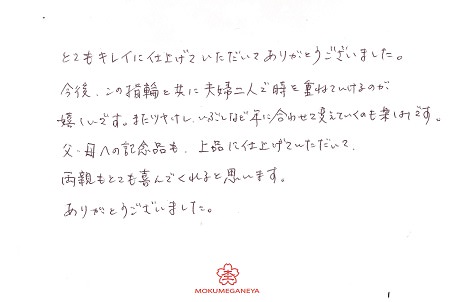 とてもキレイに仕上げていただいてありがとうございました。
今後、この指輪と共に夫婦二人で時を重ねていけるのが
嬉しいです。またツヤけし、いぶしなど年に合わせて変えていくのも楽しみです。
父・母への記念品も、上品に仕上げていただいて、
両親もとても喜んでくれると思います。
ありがとうございました。
MOKUMEGANEYA